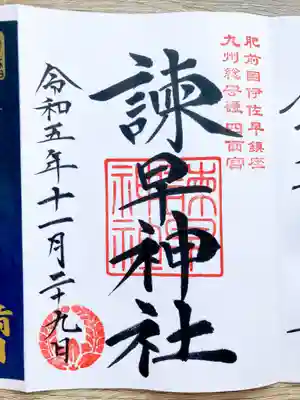 肥前国伊佐早鎮座
九州総守護四面宮
諫早神社
諫早神社
令和五年十一月二十九日